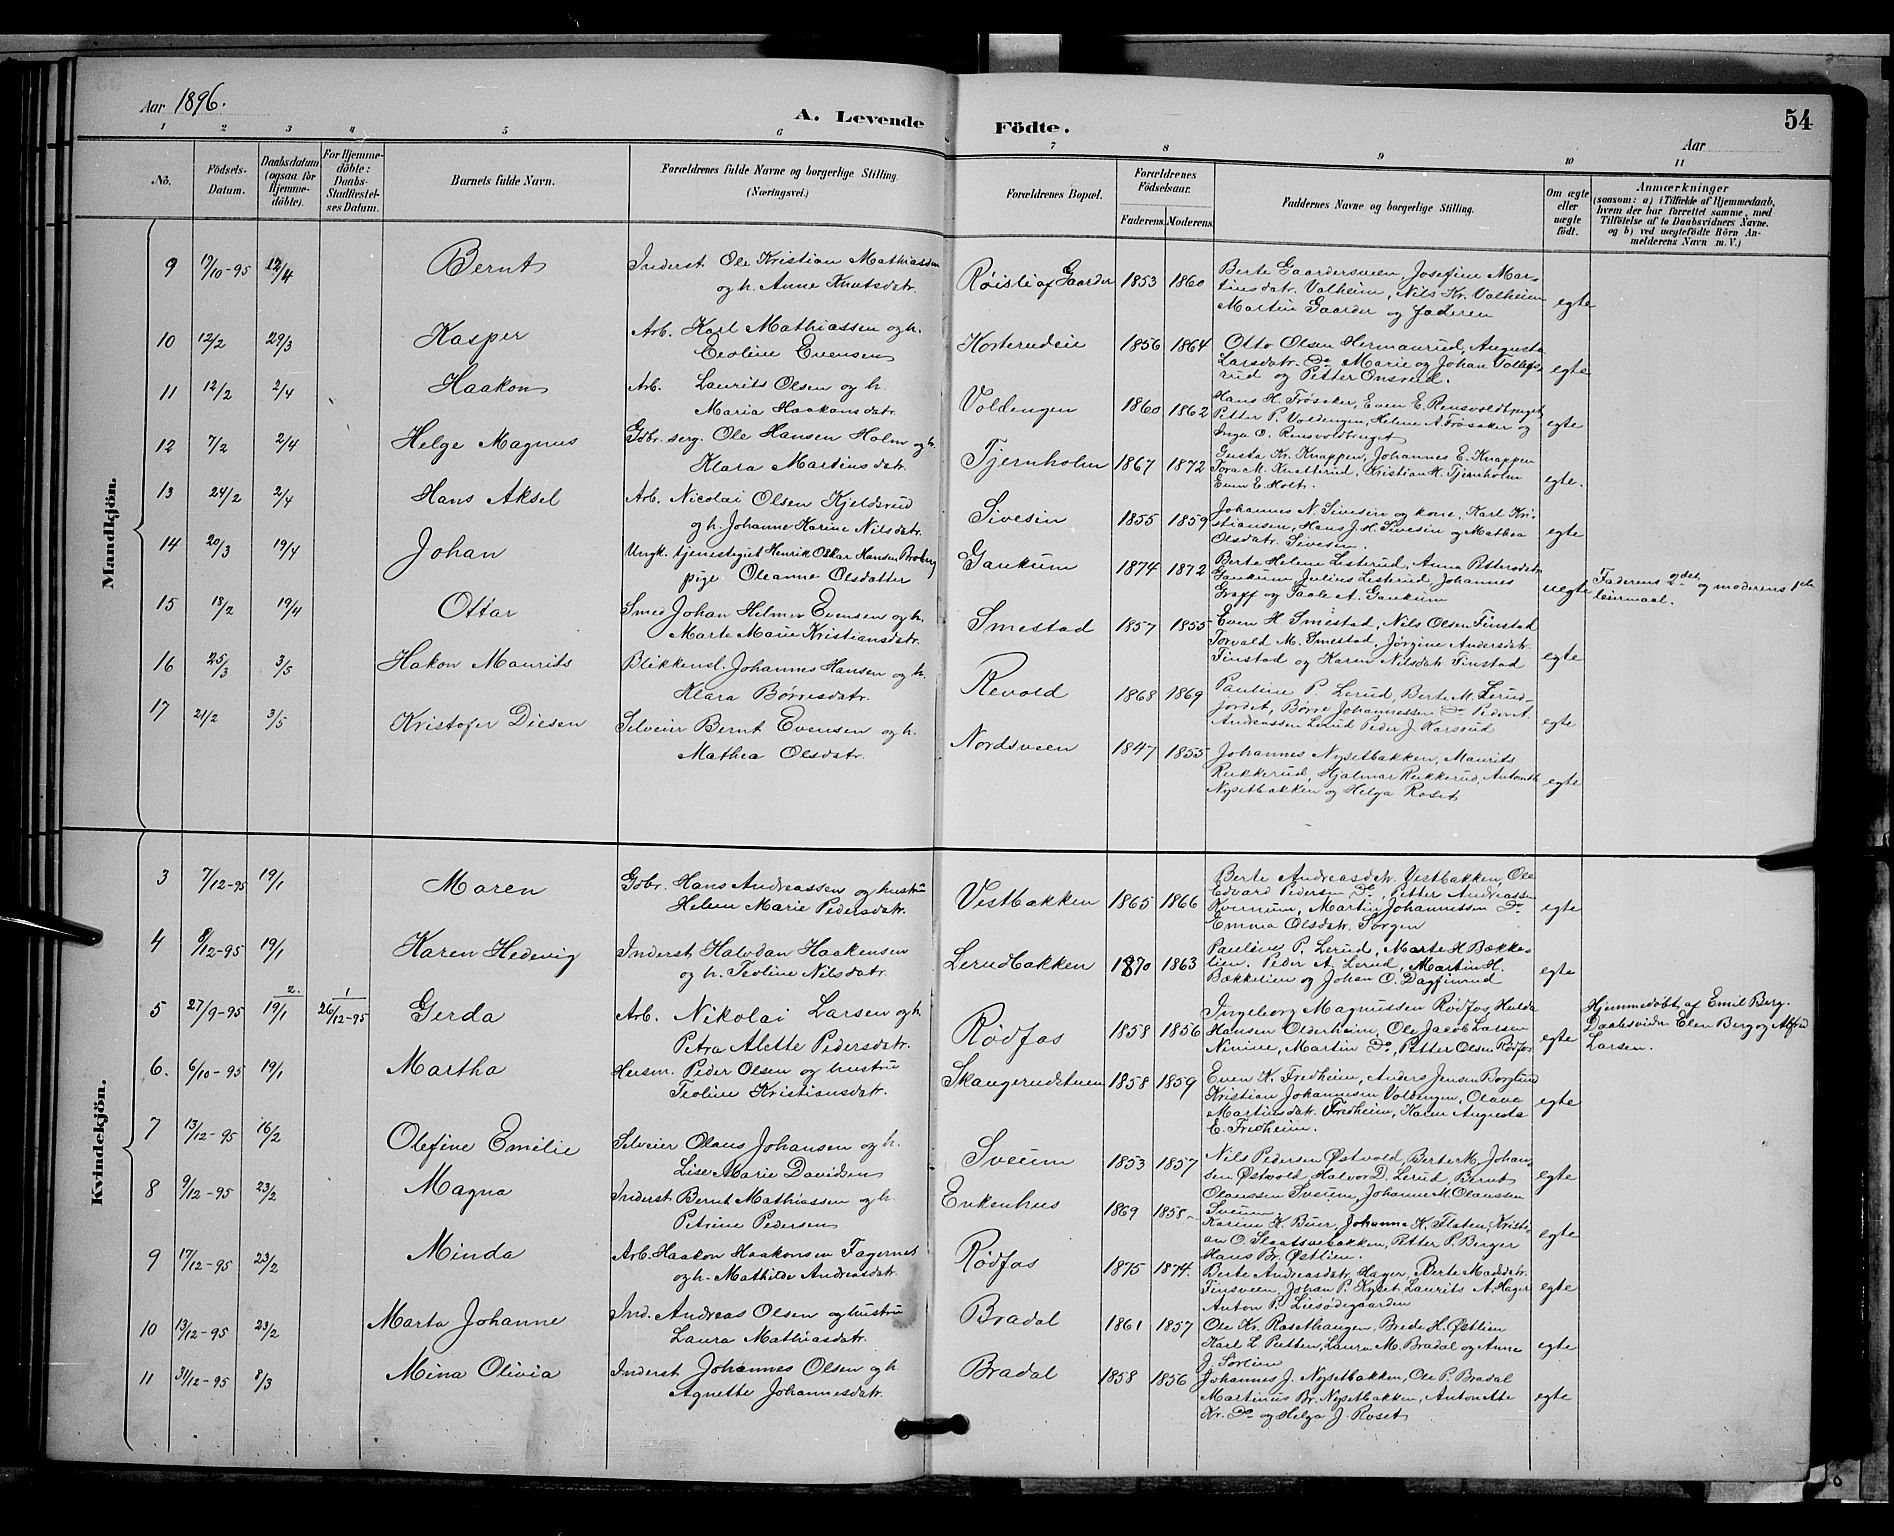 Aar 1896.
A. Levende Födte.
54
Aar
1 2 3 4 5 6 7 8 9 10 11
No.
Födsels-Datum.
Daabsdatum (ogsaa for Hjemme-döbte).
For Hjemme-döbte: Daabs-Stadfæstel-ses Datum.
Barnets fulde Navn.
Forældrenes fulde Navne og borgerlige Stilling. (Næringsvei.)
Forældrenes Bopæl.
Forældrenes Födselsaar.
Faderens. Moderens.
Faddernes Navne og borgerlige Stilling.
Om ægte eller uægte födt.
Anmærkninger
(saasom: a) i Tilfælde af Hjemmedaab,
hvem der har forrettet samme, med
Tilföielse af to Daabsvidners Navne.
og b) ved uægtefödte Börn An-
melderens Navn m. V.)
Mandkjön.
9 19/10-95 12/4 Bernt Inderst Ole Kristian Mathiassen
og h. Anne Knutsdatr. Røisli af Gaarder 1853 1860
Berte Gaardersveen, Josefine Mar-
tinsdatr. Valheim, Nils Kr. Valheim
Martin Gaarder og Faderen egte
10 12/2 29/3 Kasper Arb. Karl Mathiassen og h.
Eveline Evensen Kosterudeie 1856 1864
Otto Olsen Hermanrud, Augusta
Larsdatr. Do Marie og Johan Tollefs-
rud og Petter Onsrud. egte
11 12/2 2/4 Haakon Arb. Laurits Olsen og h.
Maria Haakonsdatr. Voldengen 1860 1862
Hans H. Frøsaker, Even E. Rensvoldbryget
Petter P. Voldengen, Helene A Frøsaker og
Inga O. Rensvoldbryget egte
12 7/2 2/4 Helge Magnus Gdbr. serg. Ole Hansen Holm og h.
Klara Martinsdatr. Tjernholm 1867 1872
Gusta Kr. Knappen, Johannes E. Knappen
Tora M. Knatterud, Kristian H. Tjernholm
Even E. Holt. egte.
13 24/2 2/4 Hans Aksel Arb. Nicolai Olsen Kjeldsrud
og h. Johanne Karine Nilsdatr. Sivesin 1855 1859
Johannes N. Sivesin og kone, Karl Kri-
stiansen, Hans J. H. Sivesin og Mathea
Olsdatr. Sivesin. egte
14 20/3 19/4 Johan Ungk. tjenestegut Henrik Oskar Hansen Broberg
pige Oleanne Olsdatter Gaukum 1874 1872
Berte Helene Lesterud, Anna Pettersdatr.
Gaukum Julius Lesterud, Johannes
Graff og Paale A. Gaukum uegte
Faderens 2det og moderens 1ste
leiermaal.
15 18/2 19/4 Ottar Smed Johan Helmer Evensen og h.
Marte Marie Kristiansdatr. Smestad 1857 1855
Even H. Smestad, Nils Olsen Finstad
Torvald M. Smestad, Jørgine Andersdatr.
Finstad og Karen Nilsdatr. Finstad egte
16 25/3 3/5 Hakon Maurits Blikkensl. Johannes Hansen og h.
Klara Børresdatr. Revold 1868 1869
Pauline P. Lerud, Berte M. Lerud-
jordet, Børre Johannessen Do Peder
Andreassen Lerud Peder J. Karsrud egte
17 21/2 3/5 Kristofer Diesen Selveier Bernt Evensen og h.
Mathea Olsdatr. Nordsveen 1847 1855
Johannes Nysetbakken, Maurits
Rukkerud, Hjalmar Rukkerud, Antonette
Nysetbakken og Helga Roset egte
Kvindekjön.
3 7/12-95 19/1 Maren Gdbr. Hans Andreassen og hustru
Helene Marie Pedersdatr. Vestbakken 1865 1866
Berte Andreasdatr. Vestbakken, Ole
Edvard Pedersen Do, Petter Andreassen
Kvernum, Martin Johannessen Do
Emma Olsdatr. Sørgen egte
4 8/12-95 19/1 Karen Hedevig Inderst Halvdan Haakensen
og h. Teoline Nilsdatr. Lerudbakken 1870 1863
Pauline P. Lerud, Marte H Bække-
lien, Peder A. Lerud, Martin H.
Bækkelien og Johan O. Dagfinrud egte
5 27/9-95 2. 19/1 1 26/12-95 Gerda Arb. Nikolai Larsen og h.
Petra Alette Pedersdatr. Rødfos 1858 1856
Ingeborg Magnussen Rødfos, Hulda
Hansen Olderheim, Ole Jacob Larsen
Ninive, Martin Do, Petter Olsen Rødfos egte
Hjemmedøbt af Emil Berg.
Daabsvidn. Elen Berg og Alfred
Larsen.
6. 6/10-95 19/1 Martha Husm. Peder Olsen og hustru
Teoline Kristiansdatr. Skangerudstuen 1858 1859
Even K. Fredheim, Anders Jensen Borglund
Kristian Johannesen Voldengen, Olave
Martinsdatr. Fredheim, Karen Augusta
E. Fredheim. egte
7 13/12-95 16/2 Olefine Emilie Selveier Olaus Johansen og h.
Lise Marie Davidsen Sveum 1853 1857
Nils Pedersen Østvold, Berte M. Johan-
sen Østvold Halvor D. Lerud, Bernt
Olaussen Sveum, Johanne M. Olaussen
Sveum. egte
8 9/12-95 23/2 Magna Inderst Bernt Mathiassen og h.
Petrine Pedersen Enkenhus 1869 1858
Karine K. Buer, Johanna K. Flaten, Kristi-
an O. Slaatsvebakken, Petter P. Berger
Hans Br. Østlien. egte
9 17/12-95 23/2 Minda Arb. Haakon Haakonsen Fagernes
og h. Mathilde Andreasdatr. Rødfos 1875 1874.
Berte Andreasdatr. Hager, Berte Madsdatr.
Finsveen, Johan P. Kyset, Laurits A. Hager
Anton P. Liesødegaarden egte
10 13/12-95 23/2 Marta Johanne Ind. Andreas Olsen og hustru
Laura Mathiasdatr. Bradal 1861 1857
Ole Kr. Rosethaugen, Brede H. Østlien
Karl L. Putten, Laura M. Bradal og Anne
J. Sørlien egte
11 31/12-95 8/3 Mina Olivia Inderst Johannes Olsen og h
Agnette Johannesdatr. Bradal 1858 1856
Johannes J. Nysetbakken, Ole P. Bradal
Martinus Br. Nysetbakken, Antonette
Kr. Do og Helga J. Roset egte